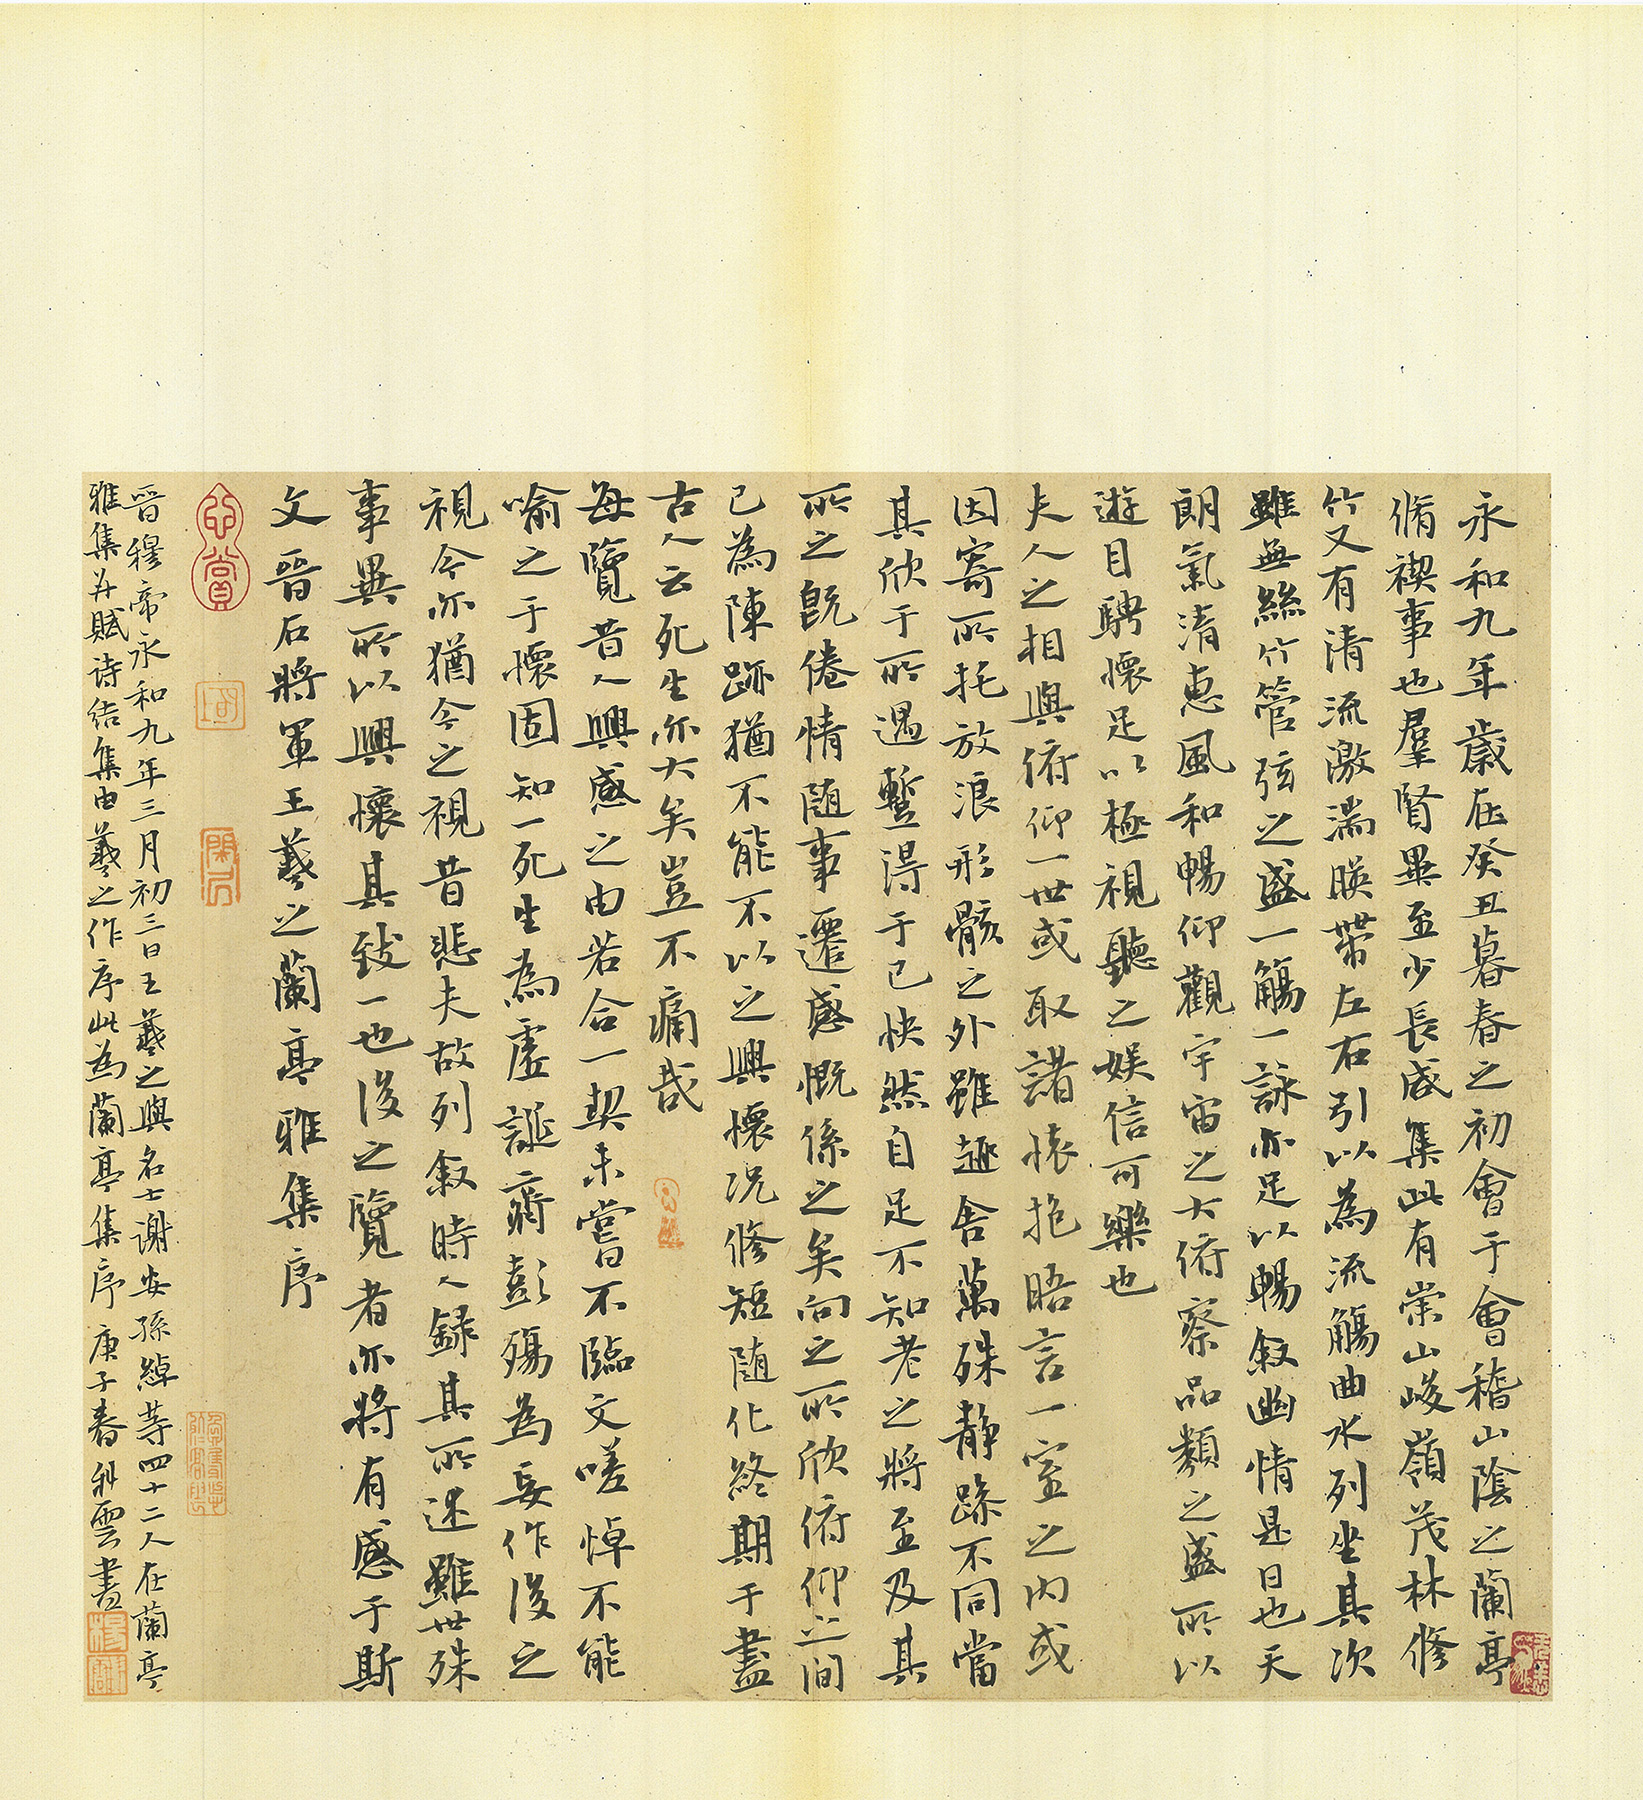 永和九年歲在癸丑暮春之初會于會稽山陰之蘭亭
脩禊事也羣賢畢至少長咸集此有崇山峻嶺茂林修
竹又有清流激湍暎帶左右引以為流觴曲水列坐其次
雖無絲竹管弦之盛一觴一詠亦足以暢敘幽情是日也天
朗氣清惠風和暢仰觀宇宙之大俯察品類之盛所以
遊目騁懷足以極視聽之娛信可樂也
夫人之相與俯仰一世或取諸懷抱晤言一室之內或
因寄所托放浪形骸之外雖趣舍萬殊静躁不同當
其欣于所遇暫得于己快然自足不知老之將至及其
所之既倦情随事遷感慨係之矣向之所欣俯仰之間
已為陳跡猶不能不以之興懷況修短随化終期于盡
古人云死生亦大矣豈不痛哉
每覽昔人興感之由若合一契未嘗不臨文嗟悼不能
喻之于懷固知一死生為虛誕齊彭殤為妄作後之
視今亦猶今之視昔悲夫故列叙時人録其所述雖世殊
事異所以興懷其致一也後之覽者亦將有感于斯
文晉右將軍王羲之蘭亭雅集序
晉穆帝永和九年三月初三日王羲之與名士謝安孫綽等四十二人在蘭亭
雅集并賦诗结集由羲之作序此為蘭亭集序庚子春科雲書